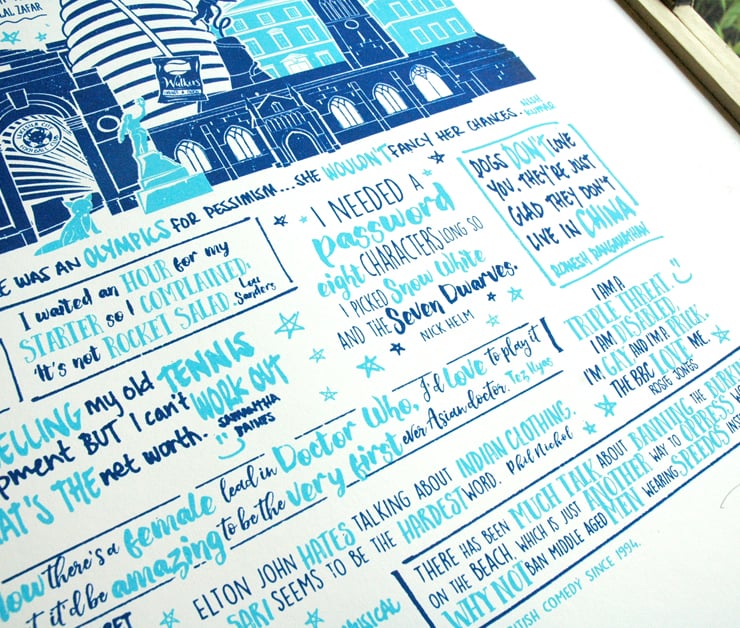 LAL ZAFAR
Walkers
E WAS AN OLYMPICS FOR PESSIMISM... SHE WOULDN'T FANCY HER CHANCES. NISH
KUMAR
I waited an HOUR for my
STARTER so I COMPLAINED:
'It's not ROCKET SALAD. Lou
Sanders
I NEEDED A
password
eight CHARACTERS LONG SO
I PICKED Snow White
AND THE Seven Dwarves.
NICK HELM
DOGS DON'T LOVE
YOU. THEY'RE JUST
GLAD THEY DON'T
LIVE IN CHINA
ROMESH RANGANATHAN
I AM A
TRIPLE THREAT.
I AM DISABLED,
I'M GAY AND I'M A PRICK.
THE BBC LOVE ME.
ROSIE JONES
ELLING my old TENNIS
pment BUT I can't WORK OUT
AT'S THE net worth. SAMANTHA
BAINES
Now there's a female lead in Doctor Who, I'd love to play it
t it'd be amazing to be the very first ever Asian doctor. Tez Ilyas
ELTON JOHN HATES TALKING ABOUT INDIAN CLOTHING.
SARI SEEMS TO BE THE HARDEST WORD. Phil Nichol
THERE HAS BEEN MUCH TALK ABOUT BANNING THE BURKI
ON THE BEACH, WHICH IS JUST ANOTHER WAY TO OPPRESS WO
WHY NOT BAN MIDDLE AGED MEN WEARING SPEEDOS INSTE
RET
USICAL
TISH COMEDY SINCE 1994.